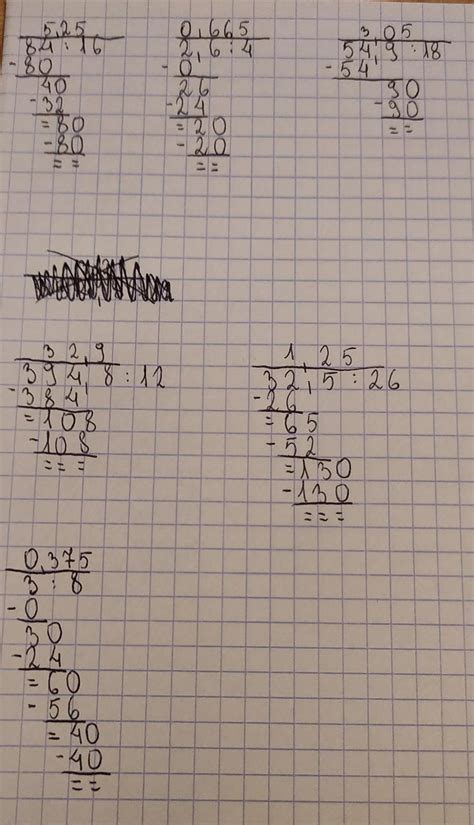 5,25
84 : 16
-80
40
-32
=80
-80
==
0,665
2,6 : 4
-0
26
-24
=20
-20
==
3,05
54,9 : 18
-54
90
-90
==
32,9
394,8 : 12
-384
=108
-108
===
1,25
32,5 : 26
-26
=65
-52
=130
-130
===
0,375
3 : 8
-0
30
-24
=60
-56
=40
-40
==